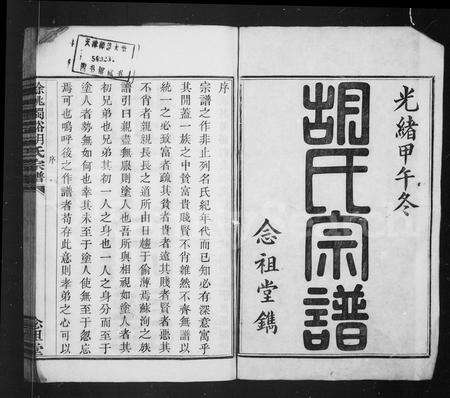 光緒甲午冬
胡氏宗譜
念祖堂鐫
序
宗譜之作非止列名氏紀年代而已知必有深意寓乎
其間蓋一族之中貧富貴賤賢不肖雖然不齊無譜以
統一之必致富者疏其貧貴者遠其賤賢者惡其
不肖者親親長長之道所由日趨于偷薄焉蘇洵之族
譜引曰親盡無服則塗人也吾所與相視如塗人者其
初兄弟也兄弟其初一人之身也一人之身分而至于
塗人者勢無如何也幸其未至于塗人使無至于忽忘
焉可也嗚呼後之作譜者苟存此意則孝弟之心可以
胡氏宗譜
序
念祖堂